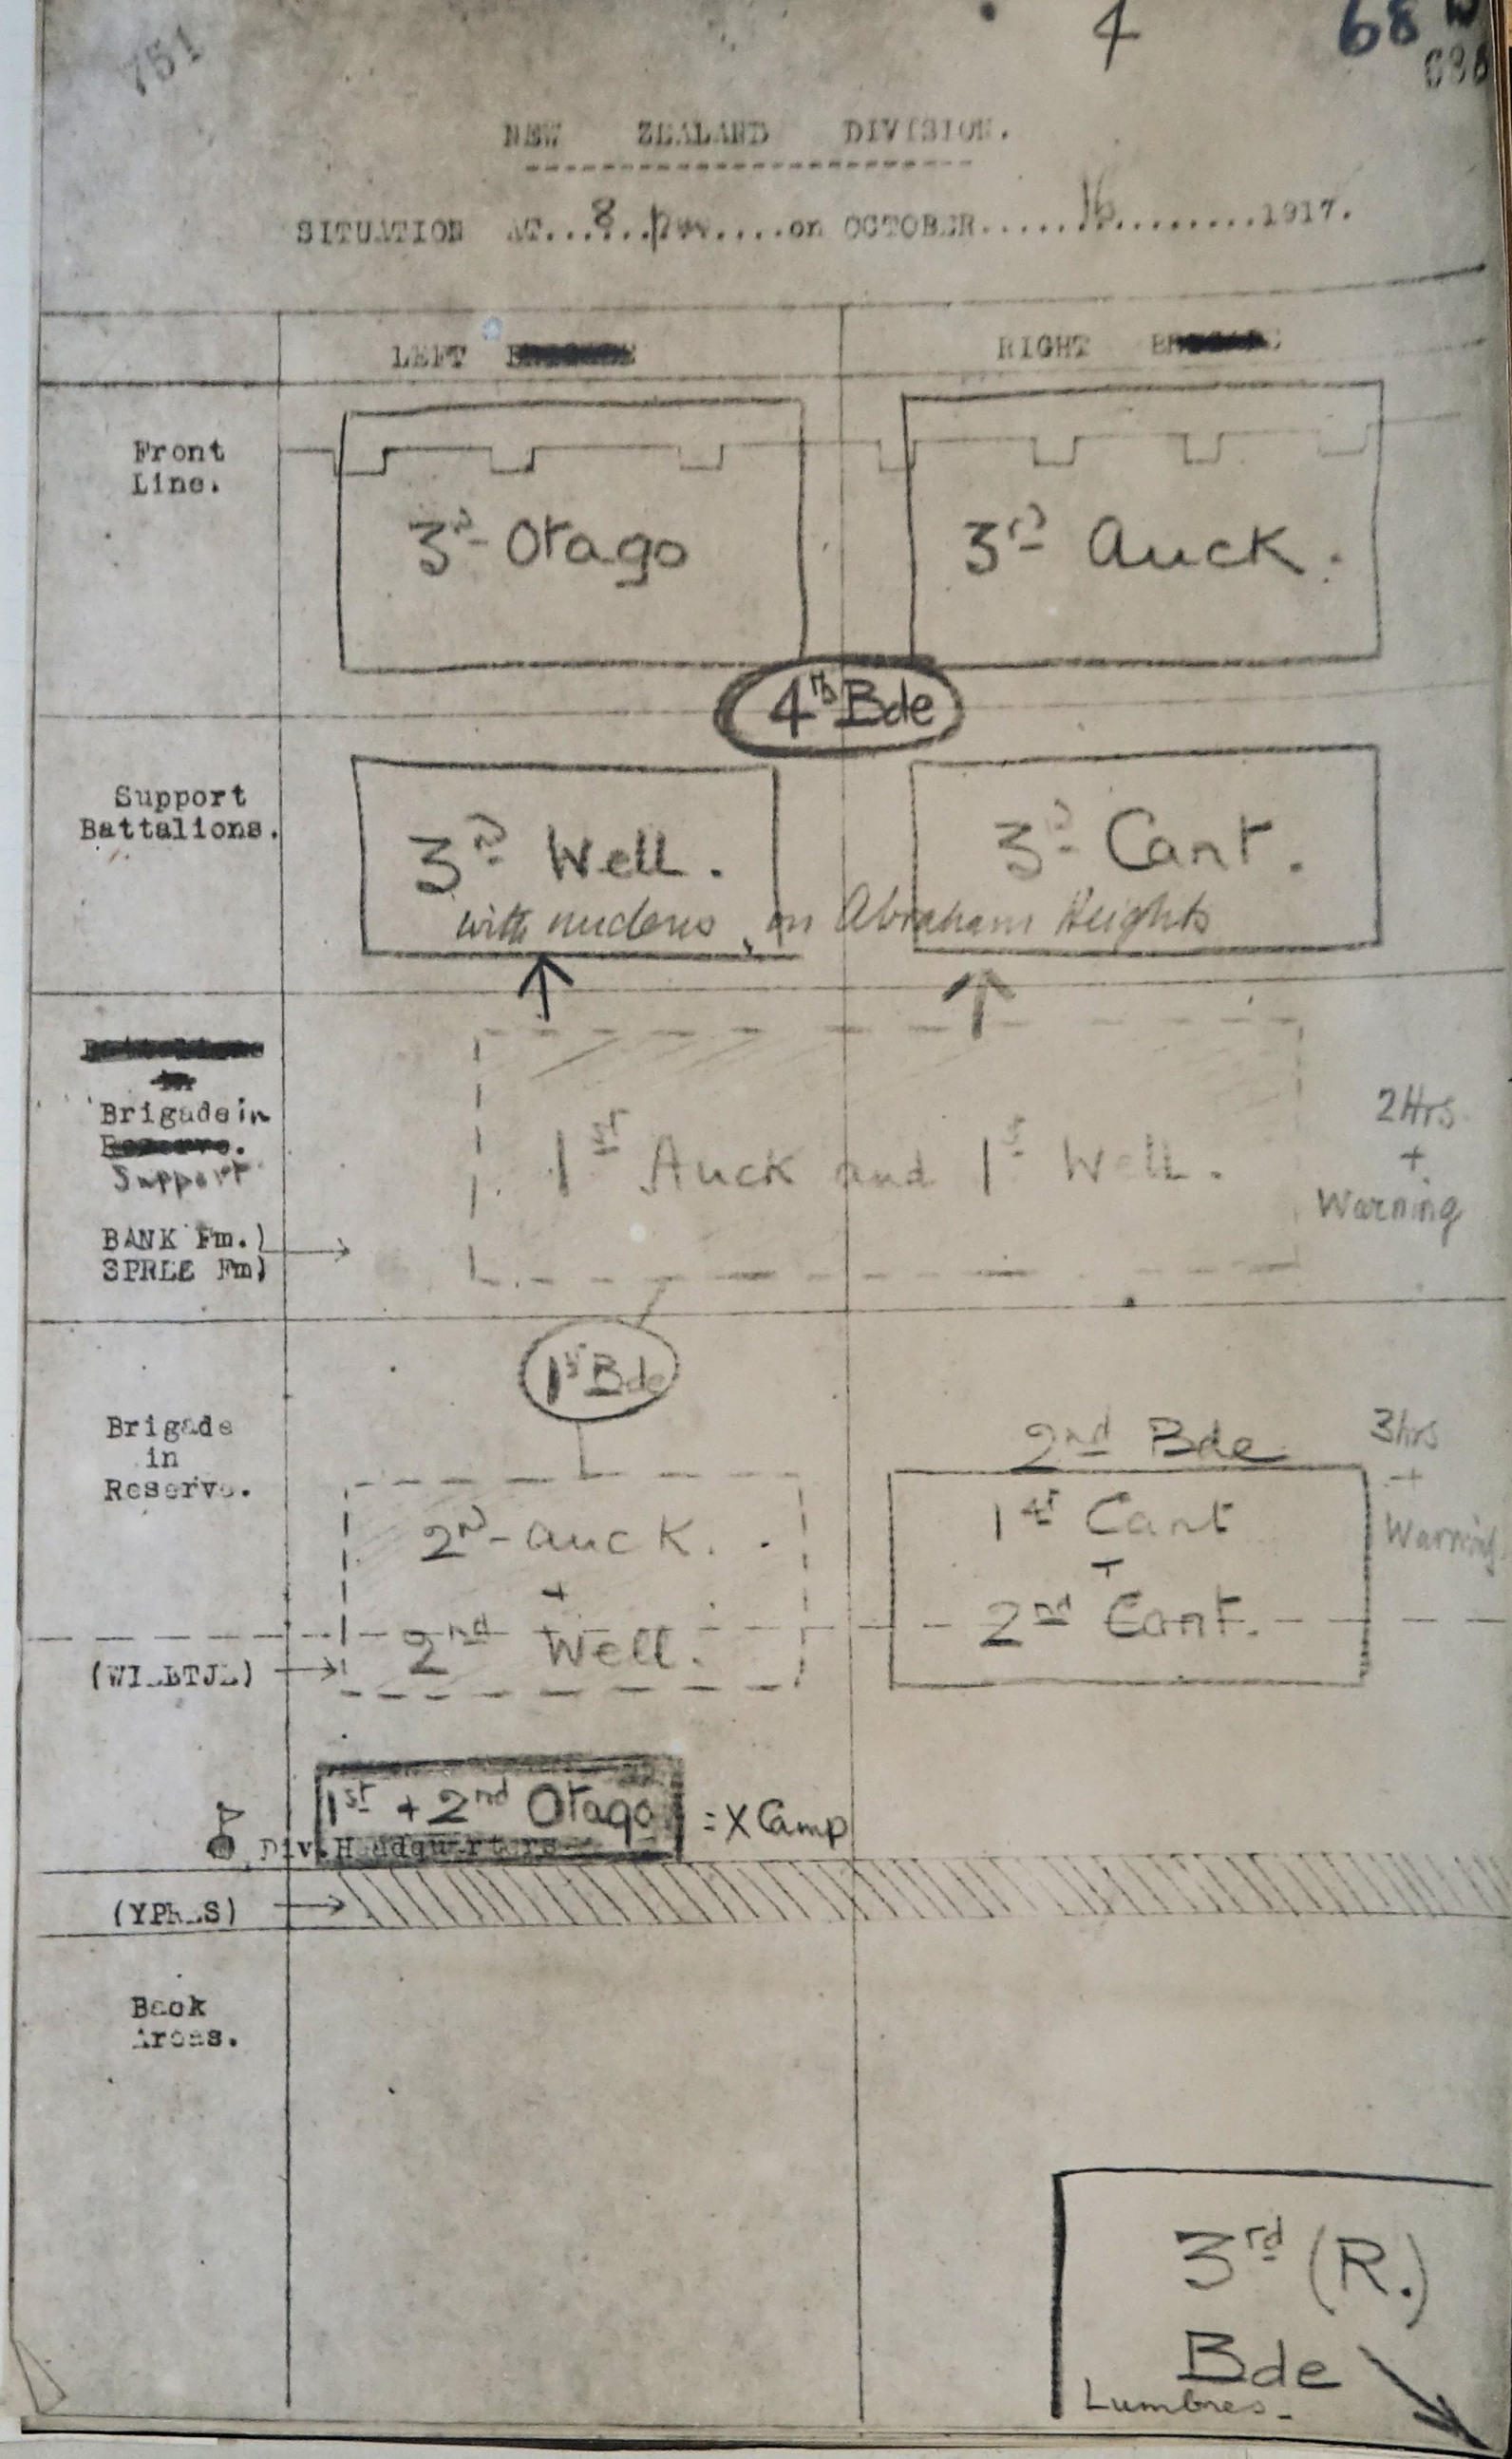 751
4
68
NEW ZEALAND DIVISION.
SITUATION AT...8..pm....on OCTOBER......16.........1917.
LEFT
RIGHT
Front
Line.
3rd Otago
3rd Auck.
4th Bde
Support
Battalions.
3rd Well.
3rd Cant.
with nucleus, on Abraham Heights
in
Brigade in
Reserve.
Support
1st Auck and 1st Well.
2Hrs
+
Warning
BANK Fm.)
SPREE Fm)
1st Bde
Brigade
in
Reserve.
2nd Bde
3hrs
+
Warning
2nd Auck.
+
2nd Well.
1st Cant
+
2nd Cant.
(WIELTJE)
1st + 2nd Otago = X Camp
Div. Headquarters
(YPRES)
Back
Areas.
3rd (R.)
Bde
Lumbres.